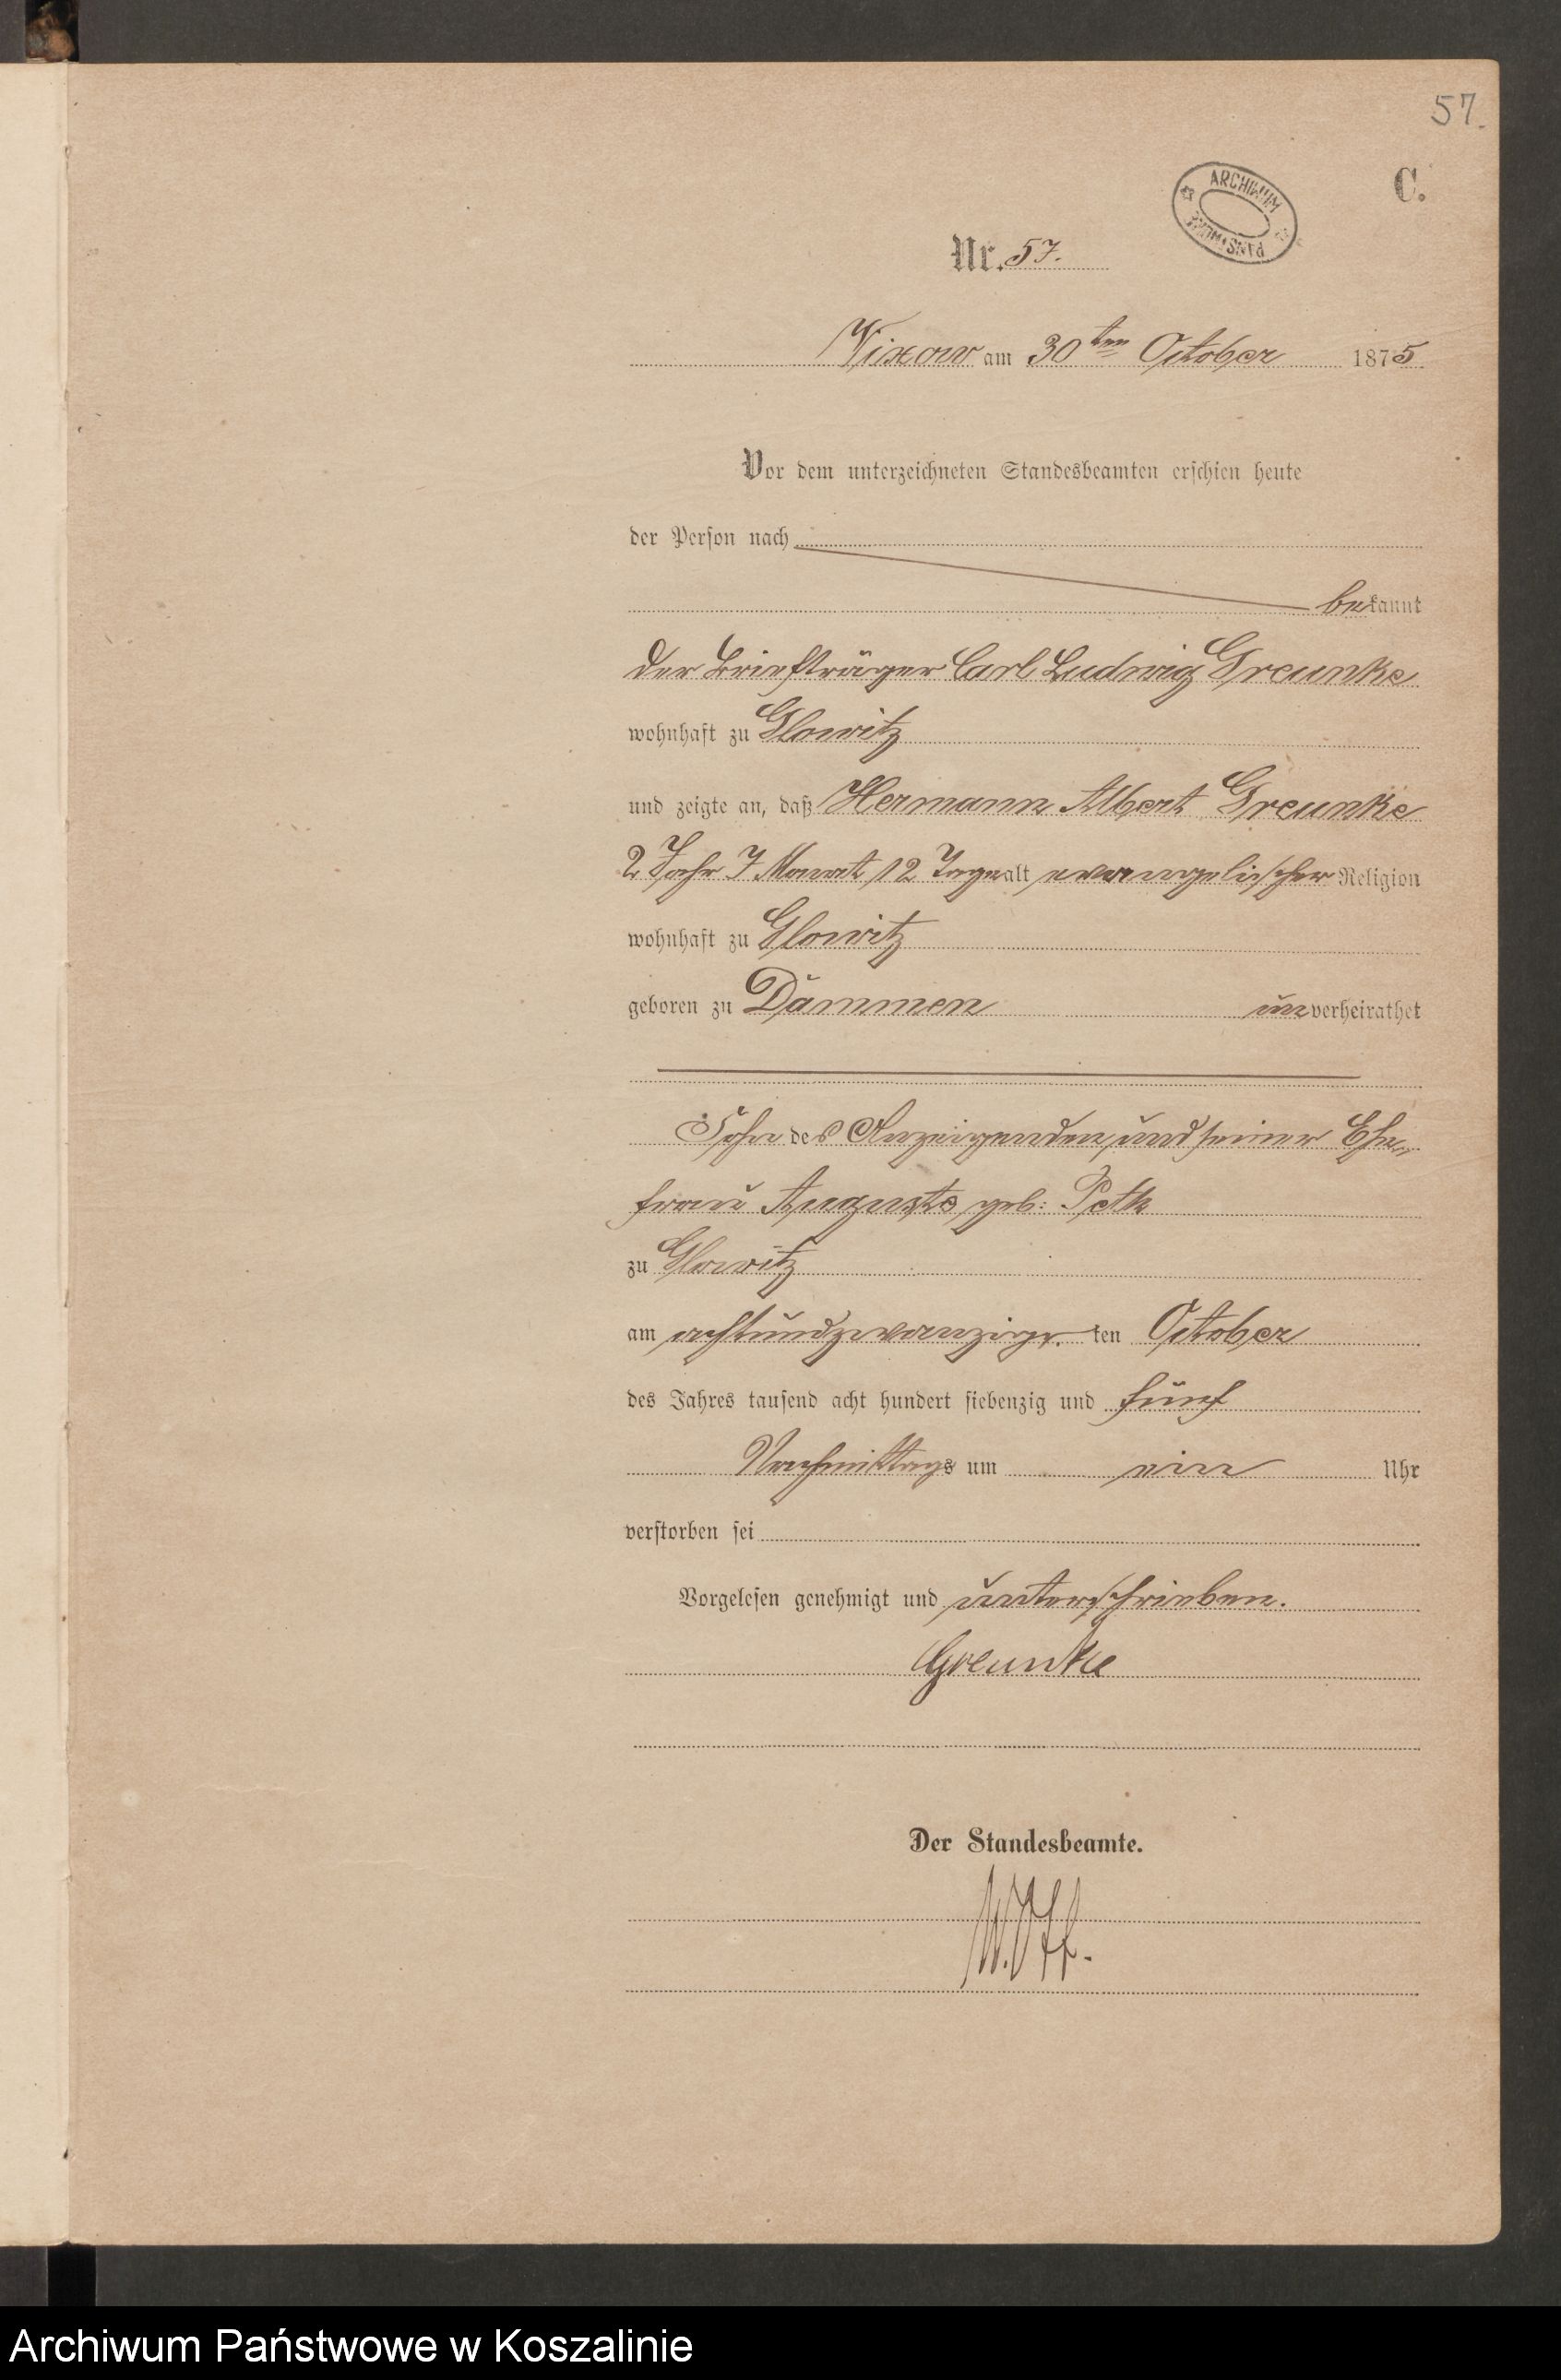 57.
C.
ARCHIWUM PAŃSTWOWE
Nr. 57.
Vixow am 30ten October 1875
Vor dem unterzeichneten Standesbeamten erschien heute
der Person nach
bekannt
der Briefträger Carl Ludwig Greunke
wohnhaft zu Glowitz
und zeigte an, daß Hermann Albert Greunke
2 Jahr 7 Monat 12 Tage alt evangelischer Religion
wohnhaft zu Glowitz
geboren zu Dammen unverheirathet
Sohn des Anzeigenden und seiner Ehe-
frau Auguste geb: Peth
zu Glowitz
am achtundzwanzig.ten October
des Jahres tausend acht hundert siebenzig und fünf
Nachmittags um ein Uhr
verstorben sei
Vorgelesen genehmigt und unterschrieben.
Greunke
Der Standesbeamte.
Archiwum Państwowe w Koszalinie